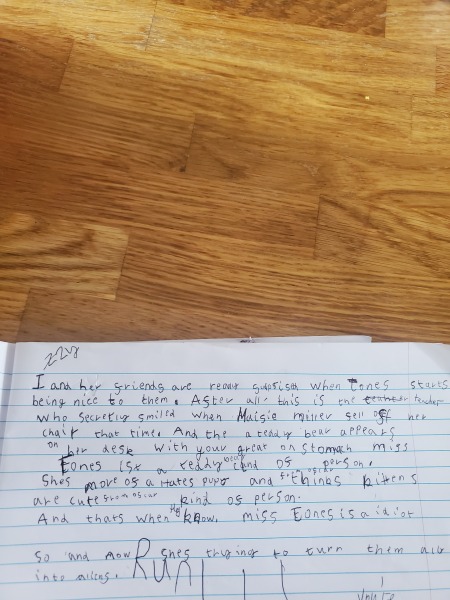 I and her griends are realy suprised when Eones starts
being nice to them. After all this is the teacher
who secretly smiled when Maisie miller sell off her
chair that time. And the a teddy bear appears
on her desk with your great on stomach miss
Eones isk a teddy bear cind of person.
Shes more of a Hates pups and thinks kittens
are cute from afar kind of person.
And thats when we know, miss Eones is a idiot
So and now shes trying to turn them all
into aliens. Run